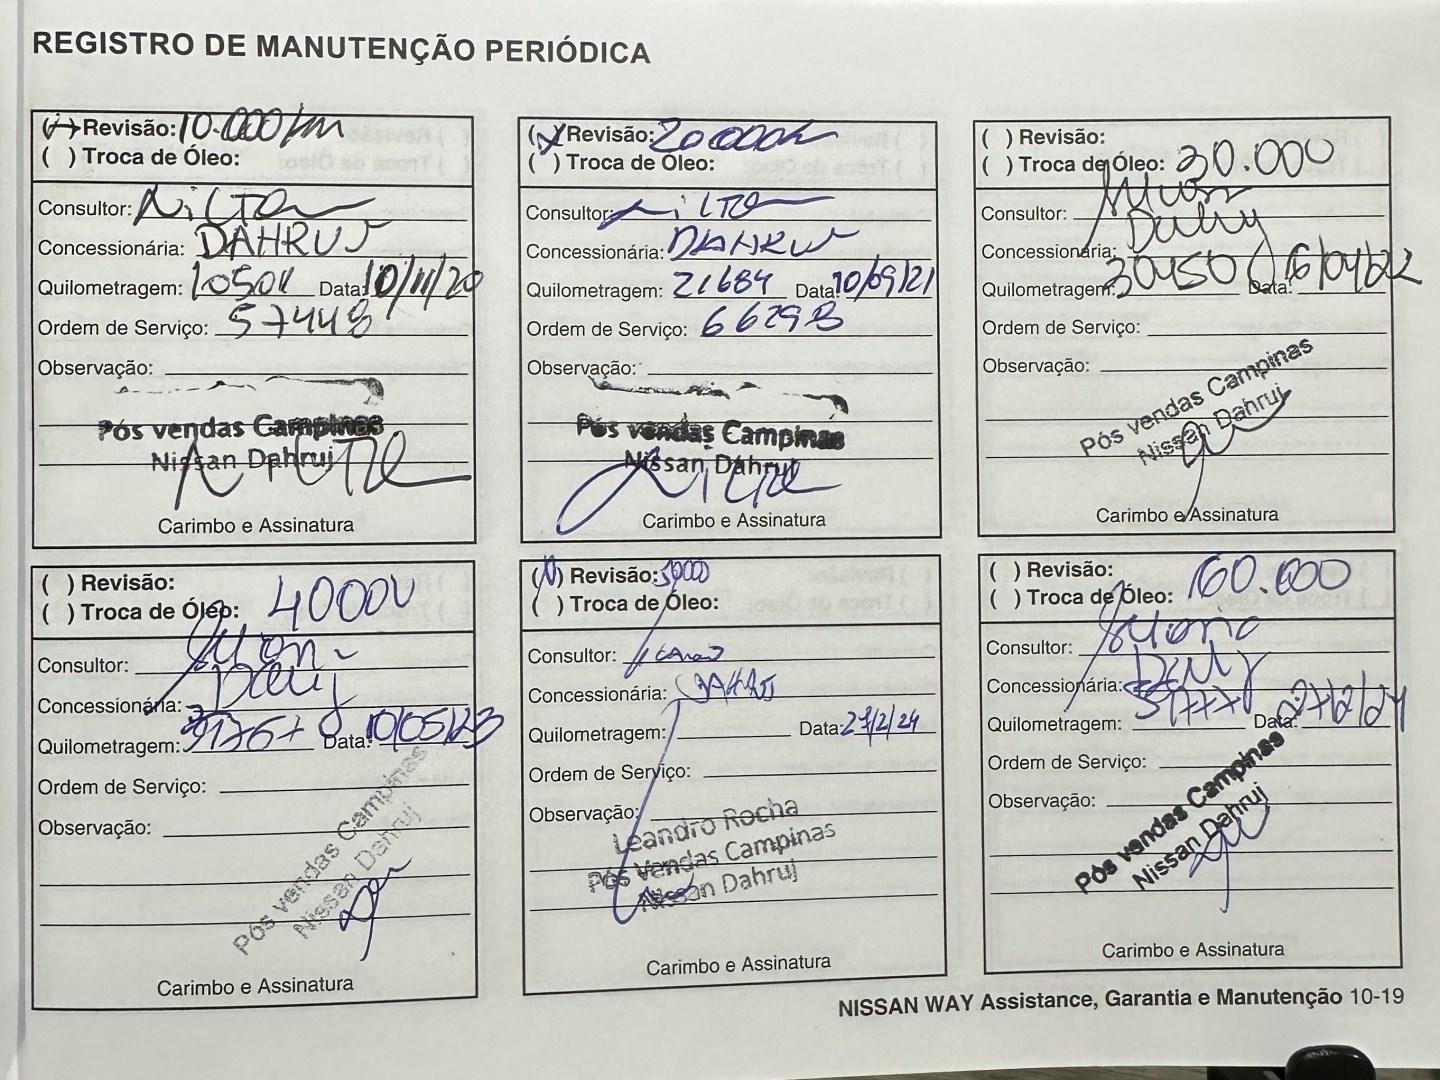 REGISTRO DE MANUTENÇÃO PERIÓDICA
( ) Revisão: 10.000 km
( ) Troca de Óleo:
Consultor: Nilton
Concessionária: DAHRUJ
Quilometragem: 10501 Data: 10/11/20
Ordem de Serviço: 57448
Observação:
Pós vendas Campinas
Nissan Dahruj
Carimbo e Assinatura
(X) Revisão: 20000k
( ) Troca de Óleo:
Consultor: Nilton
Concessionária: DAHRUJ
Quilometragem: 21684 Data: 10/09/21
Ordem de Serviço: 66298
Observação:
Pós vendas Campinas
Nissan Dahruj
Carimbo e Assinatura
( ) Revisão:
( ) Troca de Óleo: 30.000
Consultor:
Concessionária:
Quilometragem: 30450 Data: 16/04/22
Ordem de Serviço:
Observação:
Pós vendas Campinas
Nissan Dahruj
Carimbo e Assinatura
( ) Revisão:
( ) Troca de Óleo: 40000
Consultor:
Concessionária:
Quilometragem: Data: 10/05/23
Ordem de Serviço:
Observação:
Pós vendas Campinas
Nissan Dahruj
Carimbo e Assinatura
( ) Revisão: 50000
( ) Troca de Óleo:
Consultor:
Concessionária: DAHRUJ
Quilometragem: Data: 27/2/24
Ordem de Serviço:
Observação:
Leandro Rocha
Pós Vendas Campinas
Nissan Dahruj
Carimbo e Assinatura
( ) Revisão:
( ) Troca de Óleo: 60.000
Consultor:
Concessionária:
Quilometragem: Data: 27/2/24
Ordem de Serviço:
Observação:
Pós vendas Campinas
Nissan Dahruj
Carimbo e Assinatura
NISSAN WAY Assistance, Garantia e Manutenção 10-19